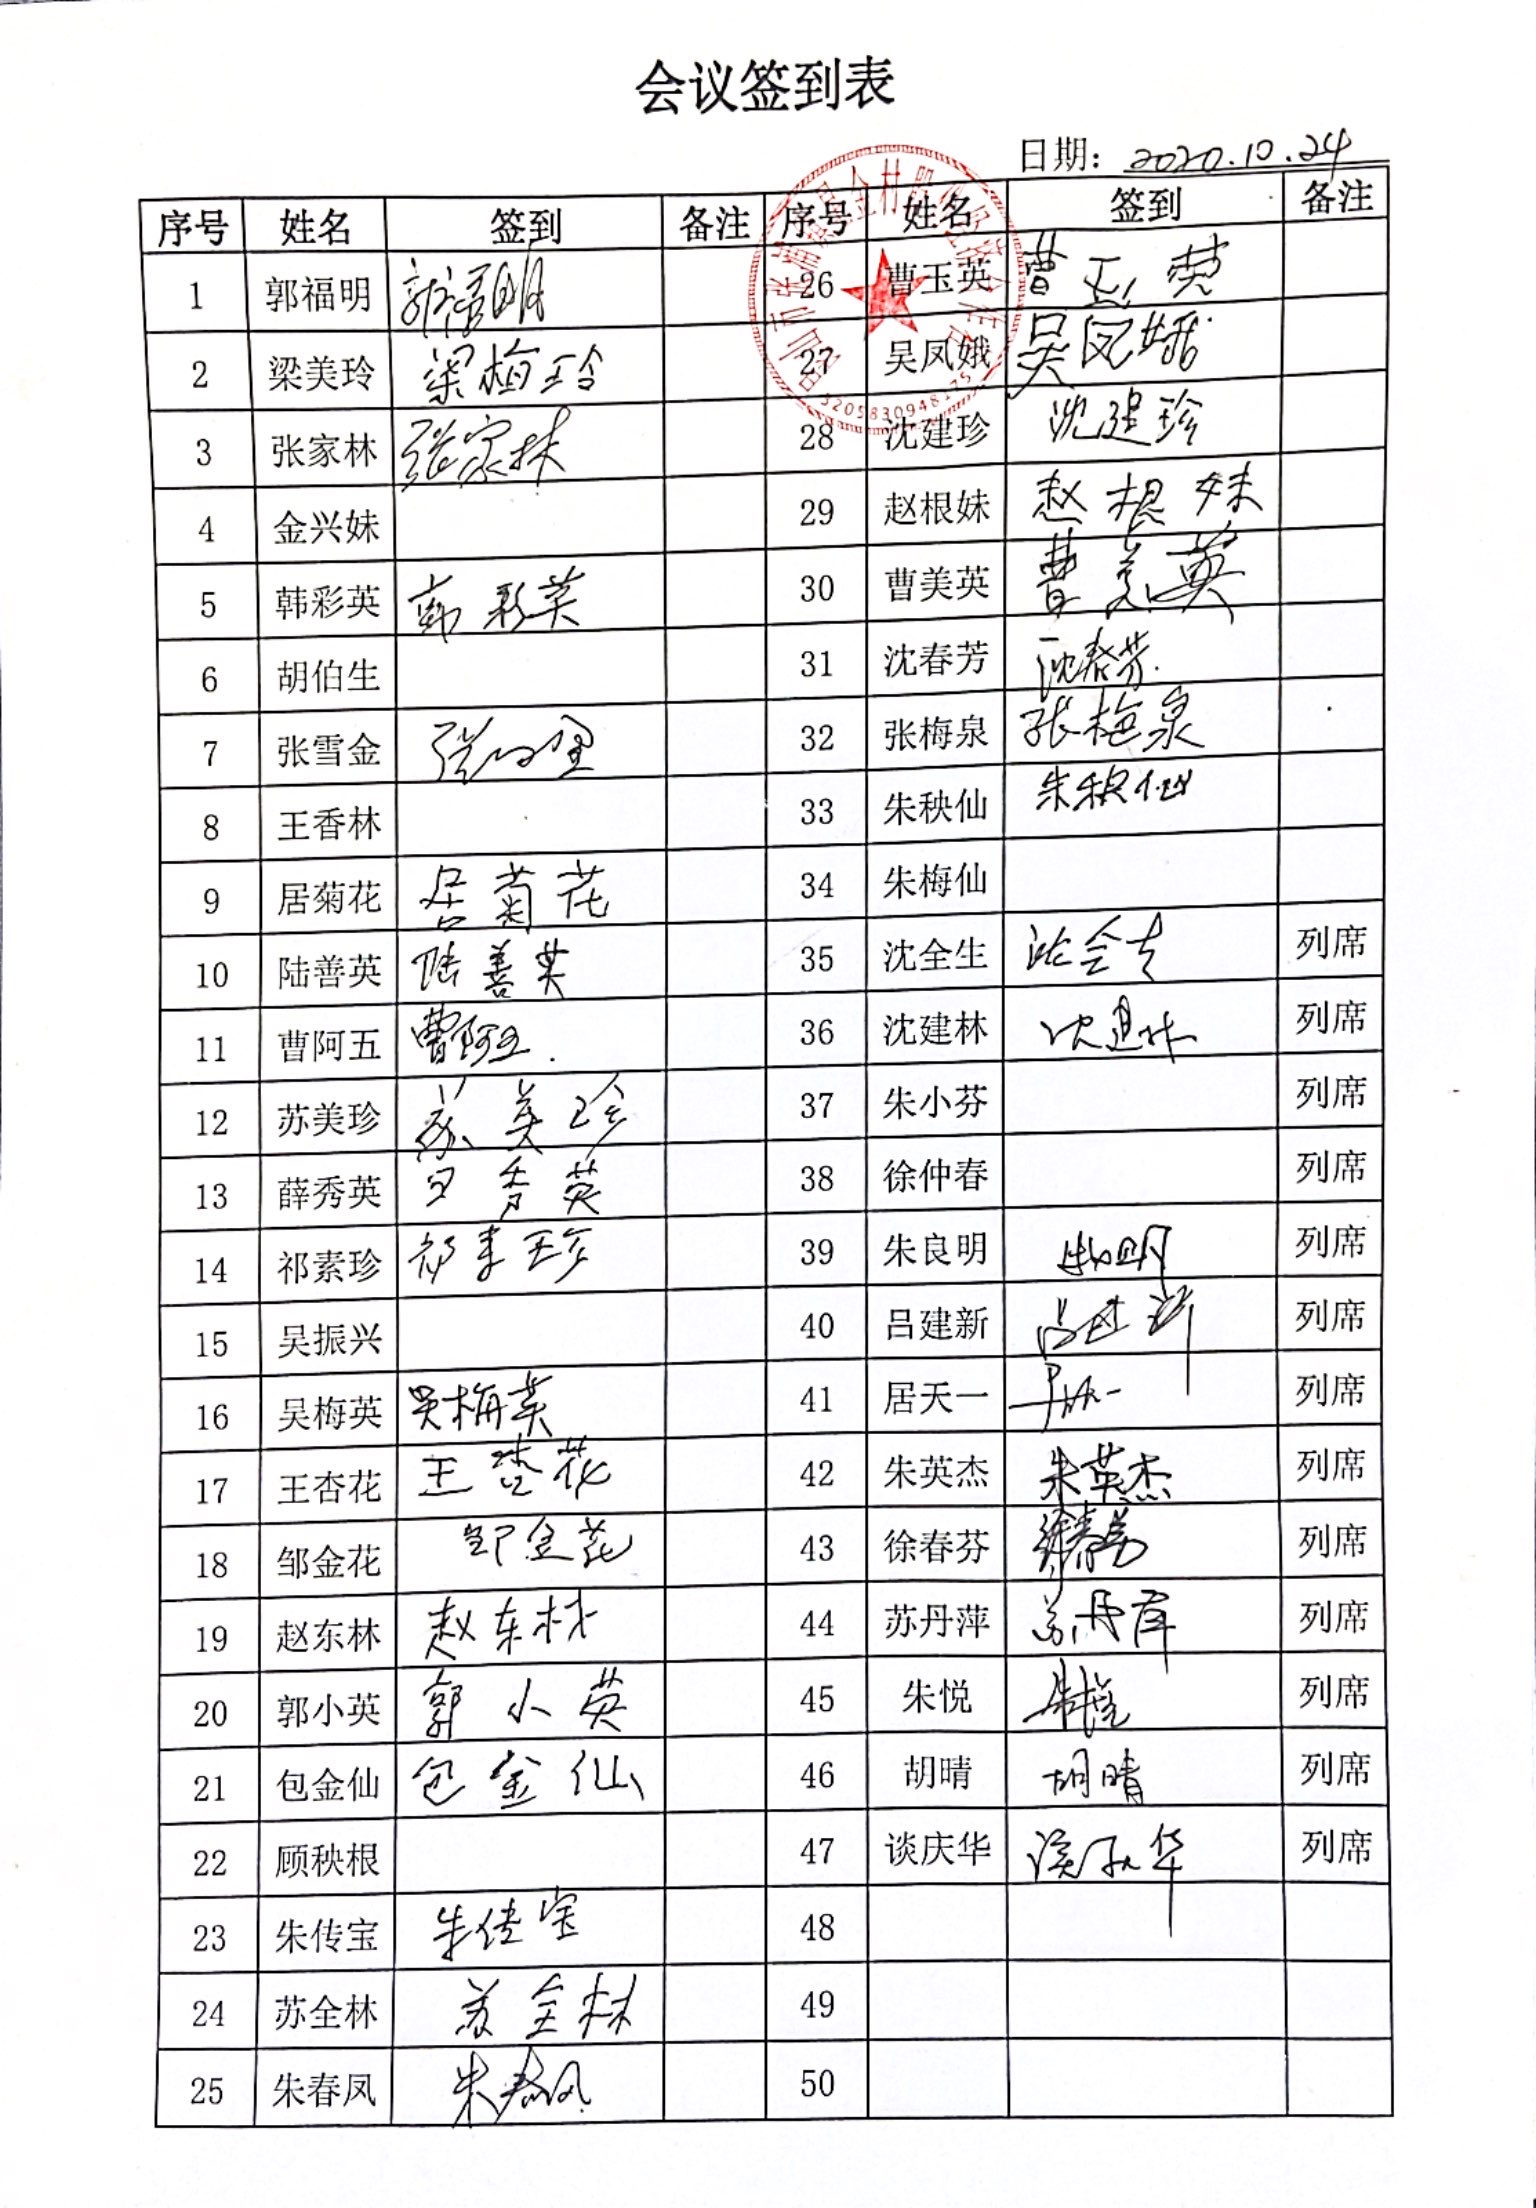 会议签到表
日期: 2020.10.24
序号 姓名 签到 备注 序号 姓名 签到 备注
1 郭福明 郭福明 26 曹玉英 曹玉英
2 梁美玲 梁梅玲 27 吴凤娥 吴凤娥
3 张家林 张家林 28 沈建珍 沈建珍
4 金兴妹 29 赵根妹 赵根妹
5 韩彩英 韩彩英 30 曹美英 曹美英
6 胡伯生 31 沈春芳 沈春芳
7 张雪金 32 张梅泉 张梅泉
8 王香林 33 朱秧仙 朱秧仙
9 居菊花 居菊花 34 朱梅仙
10 陆善英 陆善英 35 沈全生 列席
11 曹阿五 曹阿五 36 沈建林 沈建林 列席
12 苏美珍 苏美珍 37 朱小芬 列席
13 薛秀英 38 徐仲春 列席
14 祁素珍 祁素珍 39 朱良明 列席
15 吴振兴 40 吕建新 吕建新 列席
16 吴梅英 吴梅英 41 居天一 列席
17 王杏花 王杏花 42 朱英杰 朱英杰 列席
18 邹金花 邹金花 43 徐春芬 徐春芬 列席
19 赵东林 赵东林 44 苏丹萍 苏丹萍 列席
20 郭小英 郭小英 45 朱悦 朱悦 列席
21 包金仙 包金仙 46 胡晴 胡晴 列席
22 顾秧根 47 谈庆华 列席
23 朱传宝 朱传宝 48
24 苏全林 苏全林 49
25 朱春凤 朱春凤 50